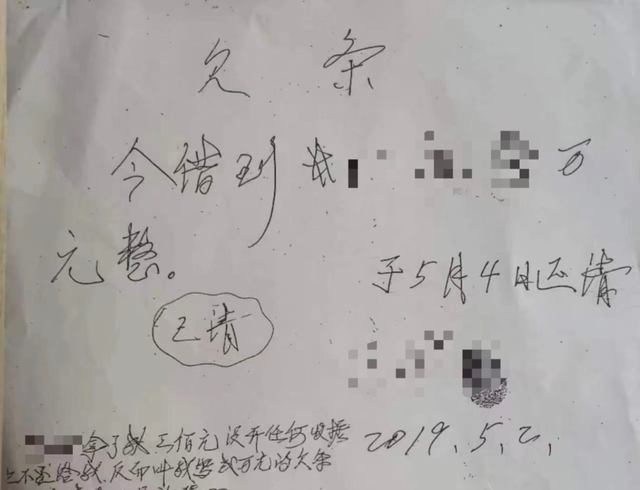 欠 条
今错到 万
元整。 于5月4日还清
已清
拿了我三佰元没开任何收据 2019.5.2.
不还给我反而叫我写 万元的欠条